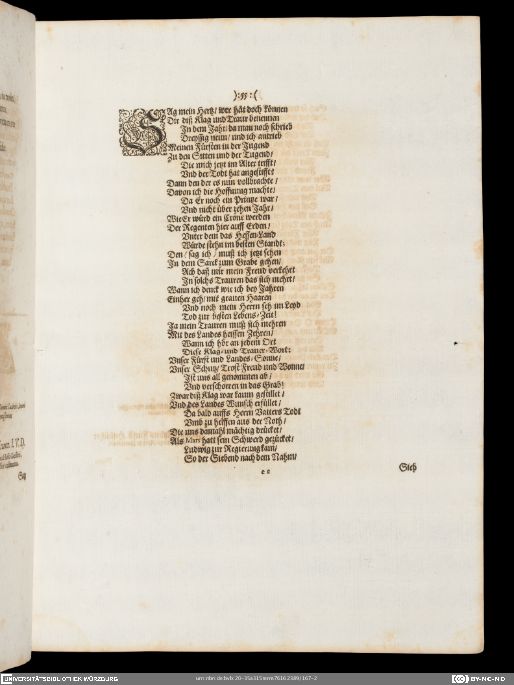 ):55:(
SAg mein Hertz/ wer hät doch können
Dir diß Klag und Traur benennen
In dem Jahr/ da man noch schrieb
Dreyssig neun/ und ich antrieb
Meinen Fürsten in der Jugend
Zu den Sitten und der Tugend/
Die mich jetzt im Alter trifft/
Vnd der Todt hat angestifft/
Dann den der es nun vollbrachte/
Davon ich die Hoffnung machte/
Da Er noch ein Printze war/
Vnd nicht über zehen Jahr/
Wie Er würd ein Crone werden
Der Regenten hier auff Erden/
Vnter dem das Hessen-Land
Würde stehn im besten Standt:
Den/ sag ich/ muß ich jetzt sehen
In dem Sarck zum Grabe gehen/
Ach daß wie mein Freud verkehrt
In solchs Trauren das sich mehrt/
Wann ich denck wie ich bey Jahren
Einher geh/ mit grauen Haaren
Vnd noch mein Herrn seh im Leyd
Tod zur besten Lebens-Zeit!
Ja mein Trauren muß sich mehren
Mit des Landes heissen Zehren/
Wann ich hör an jedem Ort
Diese Klag- und Trauer-Wort:
Vnser Fürst und Landes-Sonne/
Vnser Schutz/ Trost Freud und Wonne
Ist uns all genommen ab/
Vnd verschorren in das Grab!
Zwar diß Klag war kaum gestillet/
Vnd des Landes Wunsch erfüllet/
Da bald auffs Herrn Vatters Todt
Vnnd zu helffen aus der Noth/
Die uns damahl mächtig drücket/
Als Mars hatt sein Schwerd gezücket/
Ludwig zur Regierung kam/
So der Siebend nach dem Nahm/
e e
Sieh
UNIVERSITÄTSBIBLIOTHEK WÜRZBURG
CC BY-NC-ND